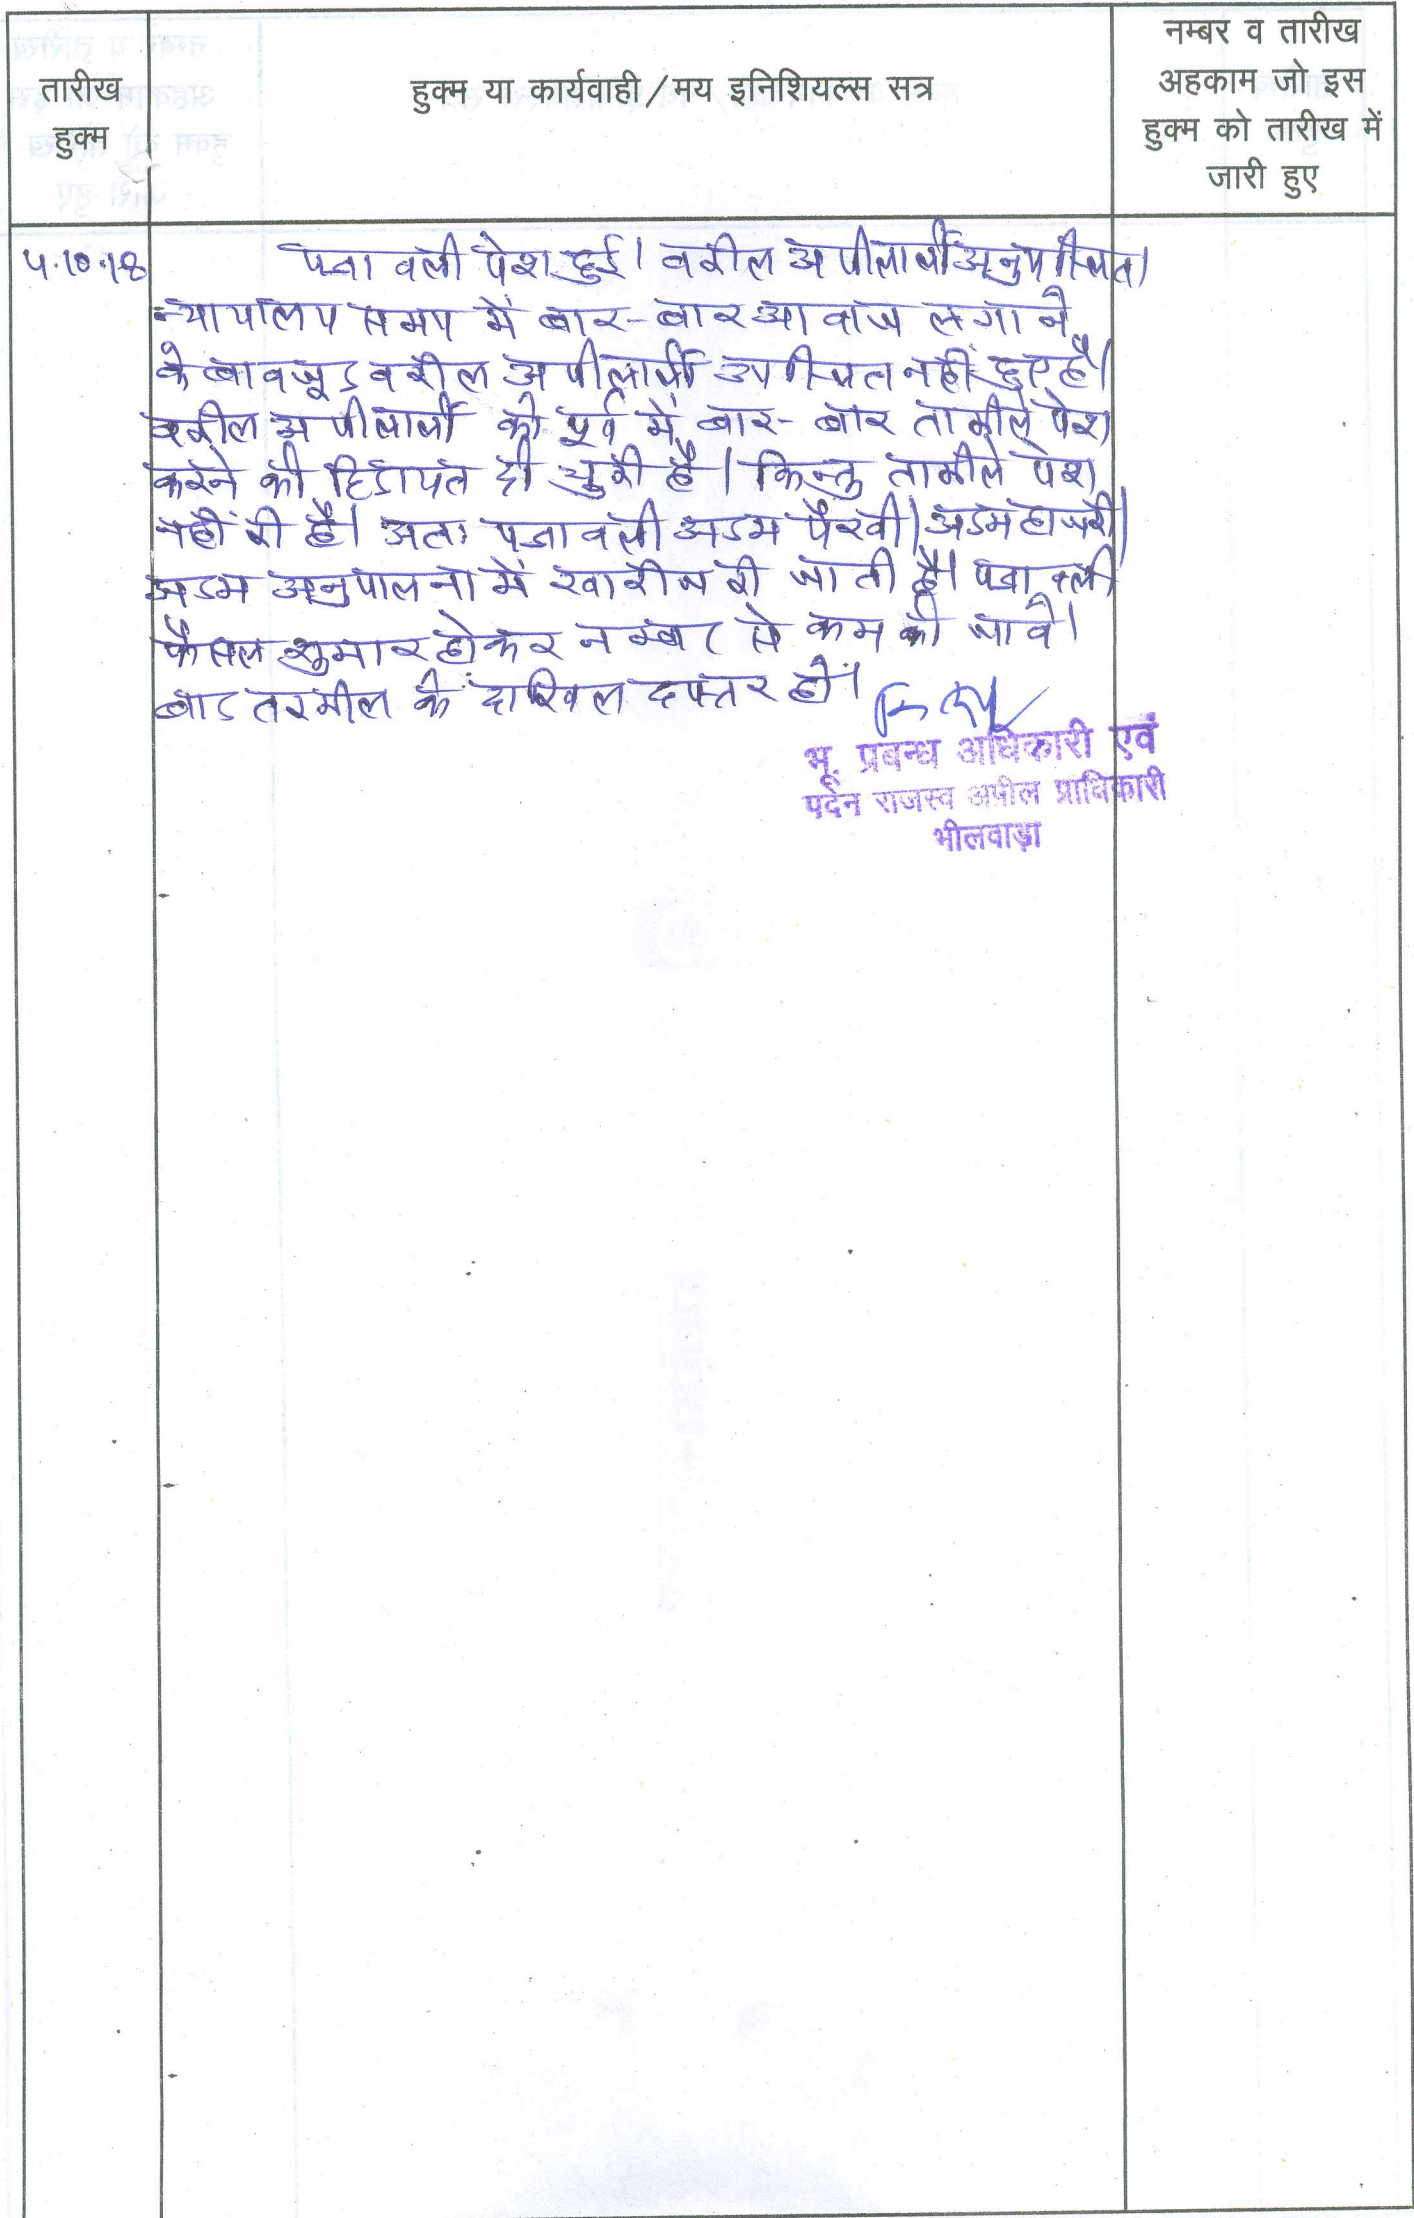 तारीख
हुक्म
हुक्म या कार्यवाही/मय इनिशियल्स सत्र
नम्बर व तारीख
अहकाम जो इस
हुक्म को तारीख में
जारी हुए
4.10.18
पत्रावली पेश हुई। वकील अपीलार्थी अनुपस्थित।
न्यायालय समय में बार-बार आवाज लगाने
के बावजूद वकील अपीलार्थी उपस्थित नहीं हुए है।
वकील अपीलार्थी को पूर्व में बार-बार तामीले पेश
करने की हिदायत दी चुकी है। किन्तु तामीले पेश
नहीं की है। अतः पत्रावली अदम पैरवी/अदम हाजरी/
अदम अनुपालना में खारीज की जाती है। पत्रावली
फैसल शुमार होकर नम्बर से कम की जावे।
बाद तकमील के दाखिल दफ्तर हो।
भू. प्रबन्ध अधिकारी एवं
पदेन राजस्व अपील प्राधिकारी
भीलवाड़ा